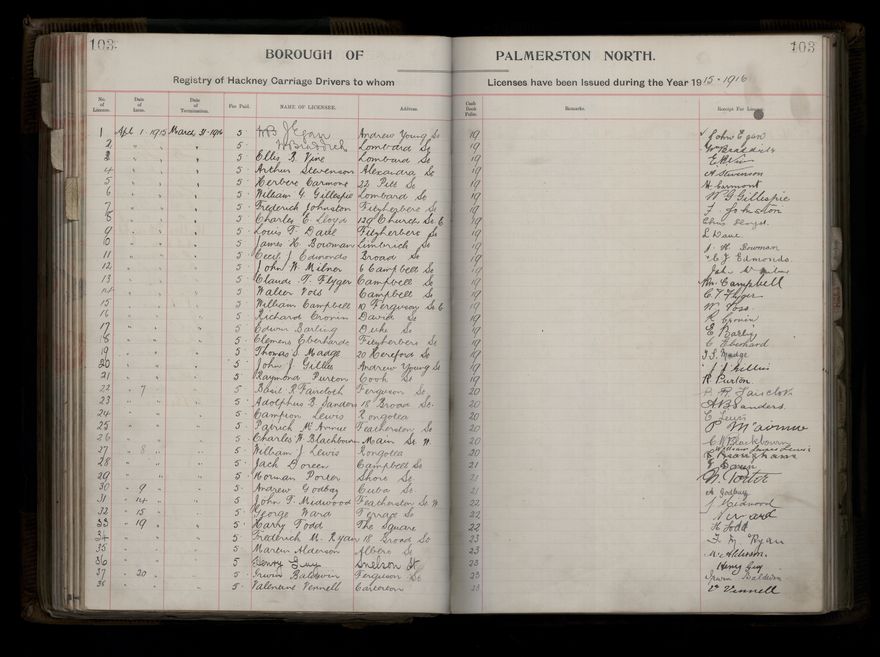 103 103
BOROUGH OF PALMERSTON NORTH.
Registry of Hackney Carriage Drivers to whom Licenses have been Issued during the Year 1915-1916
No. of License. Date of Issue. Date of Termination. Fee Paid. NAME OF LICENSEE. Address. Cash Book Folio. Remarks. Receipt For License.
1 Apl 1 1915 March 31-1916 5 J Egan Andrew Young St 19 John Egan
2 " " " 5 W Braddick Lombard St 19 Wm Braddick
3 " " " 5 Ellis R Vine Lombard St 19 E R Vine
4 " " " 5 Arthur Stevenson Alexandra St 19 A Stevenson
5 " " " 5 Herbert Carmont 22 Pitt St 19 H. Carmont
6 " " " 5 William G Gillespie Lombard St 19 W G Gillespie
7 " " " 5 Frederick Johnston Fitzherbert St 19 F Johnston
8 " " " 5 Charles E Lloyd 129 Church St E 19 Chas Lloyd
9 " " " 5 Louis F Dave Fitzherbert St 19 L Dave
10 " " " 5 James H Bowman Limbrick St 19 J H Bowman
11 " " " 5 Cecil J Edmonds Broad St 19 C J Edmonds
12 " " " 5 John W Milner 6 Campbell St 19 John W Milner
13 " " " 5 Claude T. Flyger Campbell St 19 Wm Campbell
14 " " " 5 Walter Voss Campbell St 19 C T Flyger
15 " " " 5 William Campbell 10 Ferguson St E 19 W Voss
16 " " " 5 Richard Cronin David St 19 R Cronin
17 " " " 5 Edwin Barling Duke St 19 E Barling
18 " " " 5 Clemens Eberhardt Fitzherbert St 19 C Eberhard
19 " " " 5 Thomas S Madge 20 Hereford St 19 T. S. Madge
20 " " " 5 John J Gillies Andrew Young St 19 J J Gillies
21 " " " 5 Raymond Purton Cook St 19 R Purton
22 " 7 " " 5 Basil R Faircloth Ferguson St 20 B R Faircloth
23 " " " 5 Adolphus B Sanders 18 Broad St 20 A B Sanders
24 " " " 5 Campion Lewis Rongotea 20 C Lewis
25 " " " 5 Patrick Featherston St 20 P
26 " " " 5 Charles W Blackbourn Main St W 20 C W Blackbourn
27 " 8 " " 5 William J Lewis Rongotea 20 William James Lewis
28 " " " 5 Jack Doreen Campbell St 21
29 " " " 5 Norman Porter Shore St 21 N. Porter
30 " 9 " " 5 Andrew Godbaz Cuba St 21 A Godbaz
31 " 14 " " 5 John T. Midwood Featherston St W 22 J Midwood
32 " 15 " " 5 George Ward Terrace St 22 Ward
33 " 19 " " 5 Harry Todd The Square 22 H Todd
34 " " " 5 Frederick M. Ryan 18 Broad St 23 F M Ryan
35 " " " 5 Martin Alderson Albert St 23 M Alderson
36 " " " 5 Henry Guy Snelson St 23 Henry Guy
37 " 20 " " 5 Irwin Baldwin Ferguson St 23 Irwin Baldwin
38 " " " 5 Valentine Vennell 23 V Vennell